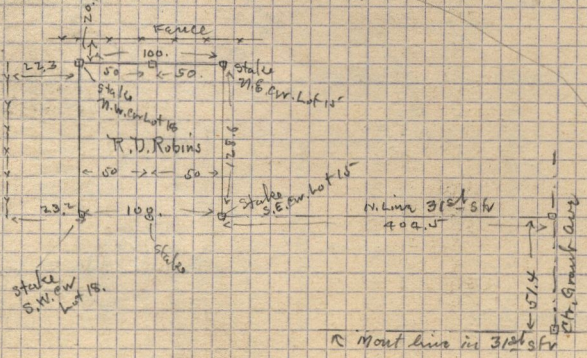 20.
Fence
100.
22.3
50
50.
Stake
N.E. cor. Lot 15
Stake
N.W. cor Lot 18
R.D. Robins
128.6
50
50
Stake
S.E. cor. Lot 15
N. Line 31st Str
404.5
23.2
100.
Stake
Stake
S.W. cor
Lot 18.
51.4
Ctr. Grant Ave
Mont line in 31st Str